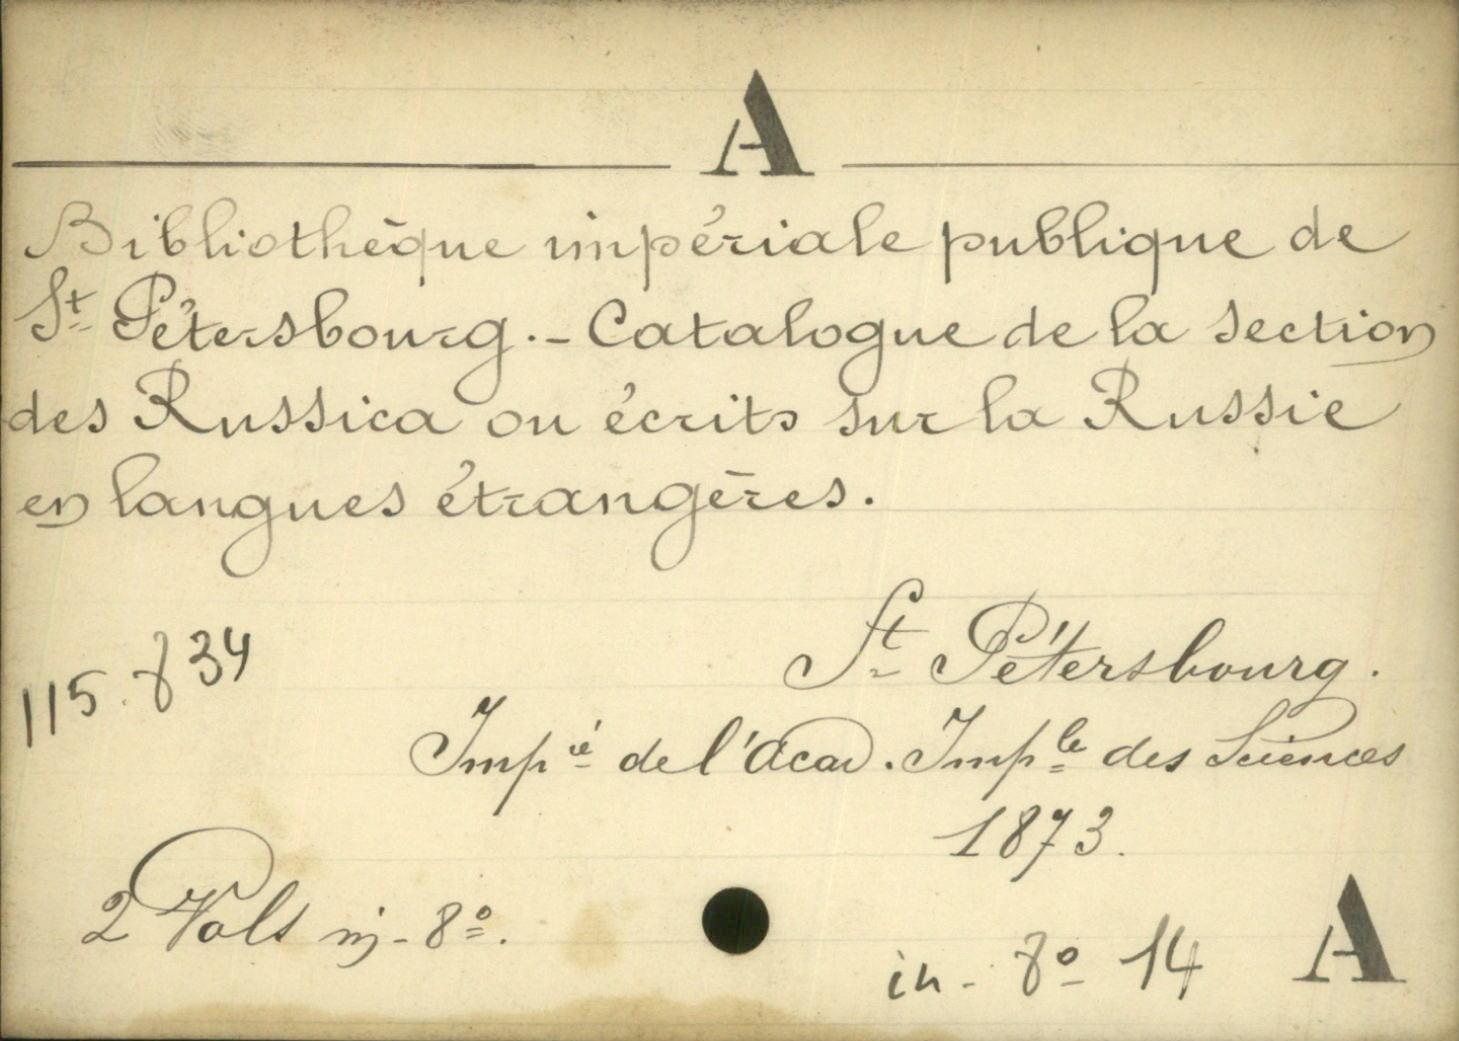 A
Bibliothèque impériale publique de
St Pétersbourg. - Catalogue de la section
des Russica ou écrits sur la Russie
en langues étrangères.
St Pétersbourg.
115. 8 34
Impie de l'Acad. Imple des Sciences
1873.
2 Vols in-8º.
in-8º 14 A